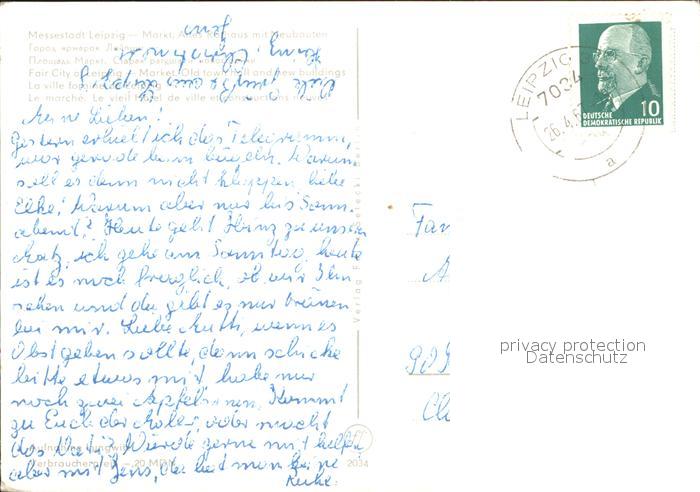 Messestadt Leipzig — Markt, Altes Rathaus mit Neubauten
Город ярмарок Лейпциг
Площадь Маркт. Старая ратуша
Fair City of Leipzig — Market, Old town hall and new buildings
La ville foraine de Leipzig
Le marché. Le vieil Hôtel de ville et constructions
Meine Lieben!
Gestern erhielt ich das Telegramm,
war gerade beim bügeln. Warum
soll es denn nicht klappen liebe
Elke! Warum aber nur bis Sonn-
abend? Heute geht Heinz zu unserem
Matz, ich gehe am Sonntag, heute
ist es noch fraglich, ob wir Ihn
sehen und da gibt es nur Tränen
bei mir. Liebe Ruth, wenn es
Obst geben sollte, dann schicke
bitte etwas mit, habe nur
noch zwei Apfelsinen. Kommt
zu Euch der Maler, oder macht
das Vati? Würde gerne mit helfen,
aber mit Jens, da hat man keine
Ruhe.
Viele Grüße aus Leipzig
Verlag
Verbraucherpreis –.20 MDN
2034
LEIPZIG
7034
26.4.6
a
DEUTSCHE
DEMOKRATISCHE REPUBLIK
10
Fam
privacy protection
Datenschutz